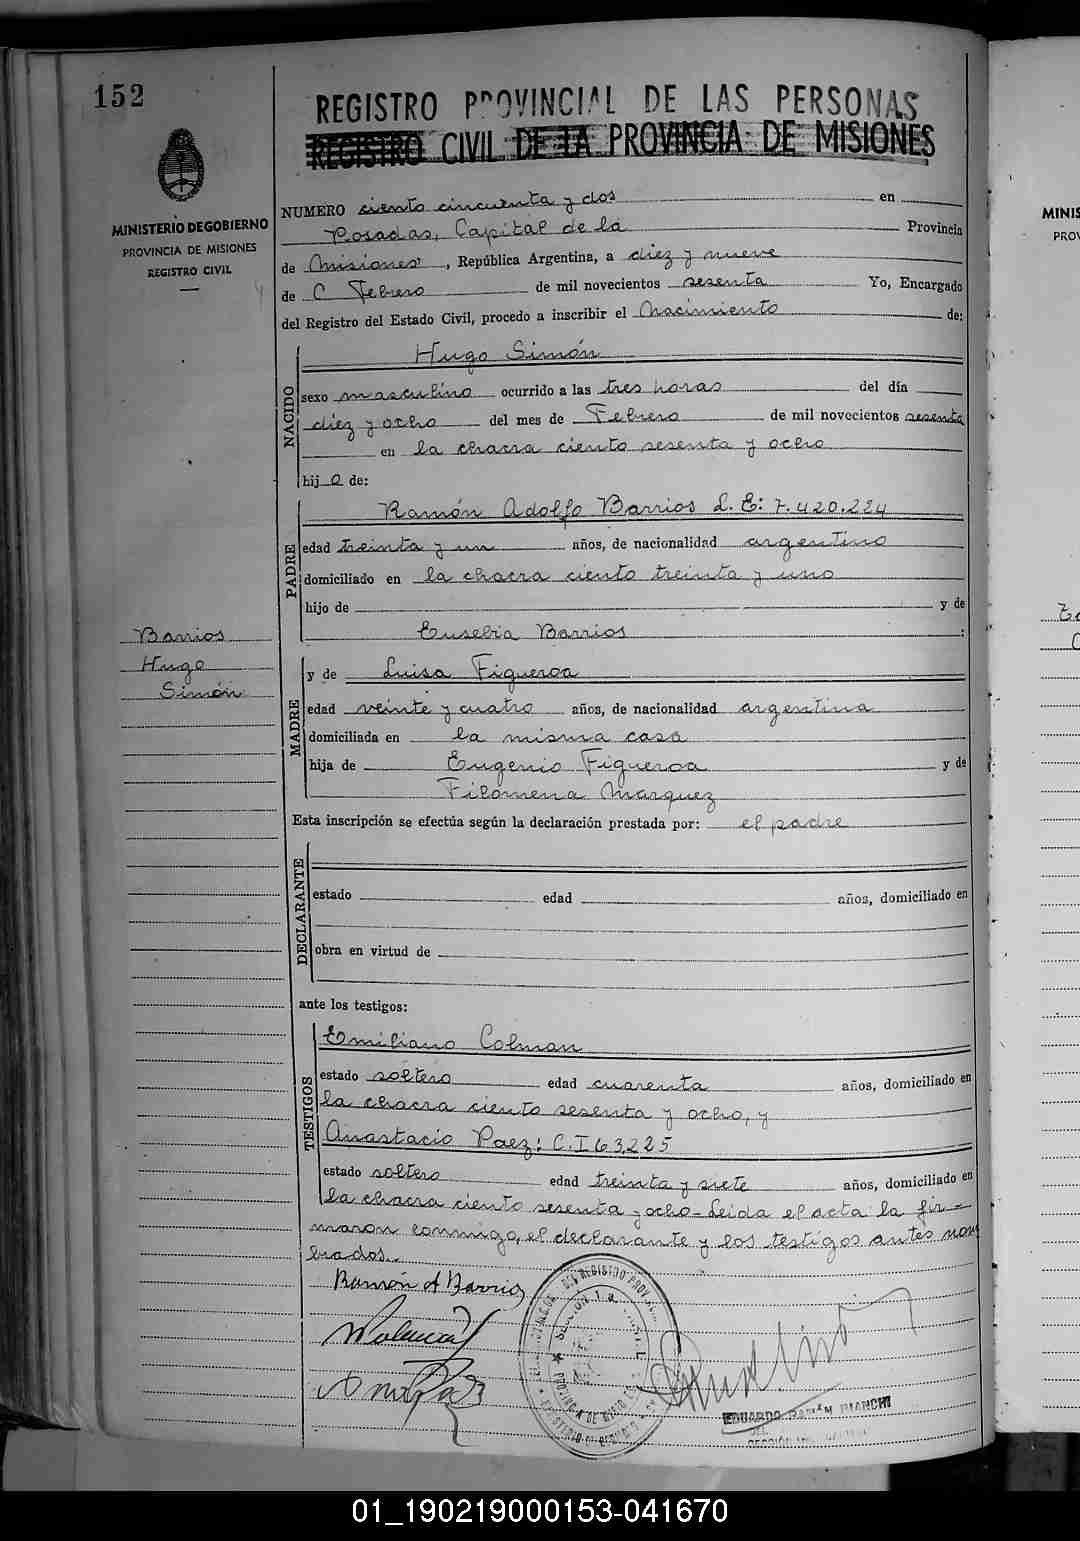 152
REGISTRO PROVINCIAL DE LAS PERSONAS
REGISTRO CIVIL DE LA PROVINCIA DE MISIONES
MINISTERIO DE GOBIERNO
PROVINCIA DE MISIONES
REGISTRO CIVIL
NUMERO ciento cincuenta y dos en
Posadas, Capital de la Provincia
de Misiones, República Argentina, a diez y nueve
de Febrero de mil novecientos sesenta Yo, Encargado
del Registro del Estado Civil, procedo a inscribir el Nacimiento de:
NACIDO
Hugo Simón
sexo masculino ocurrido a las tres horas del día
diez y ocho del mes de Febrero de mil novecientos sesenta
en la chacra ciento sesenta y ocho
hijo de:
PADRE
Ramón Adolfo Barrios L. E: 7.420.224
edad treinta y un años, de nacionalidad argentino
domiciliado en la chacra ciento treinta y uno
hijo de y de
Eusebia Barrios :
Barrios
Hugo
Simón
MADRE
y de Luisa Figueroa
edad veinte y cuatro años, de nacionalidad argentina
domiciliada en la misma casa
hija de Eugenio Figueroa y de
Filomena Marquez
Esta inscripción se efectúa según la declaración prestada por: el padre
DECLARANTE
estado edad años, domiciliado en
obra en virtud de
ante los testigos:
TESTIGOS
Emiliano Colman
estado soltero edad cuarenta años, domiciliado en
la chacra ciento sesenta y ocho, y
Anastacio Paez: C.I 63225
estado soltero edad treinta y siete años, domiciliado en
la chacra ciento sesenta y ocho- Leida el acta la fir-
maron conmigo, el declarante y los testigos antes nom
brados.
Ramón A Barrios
EDUARDO RAMÓN BIANCHI
MINIS
PROV
01_190219000153-041670